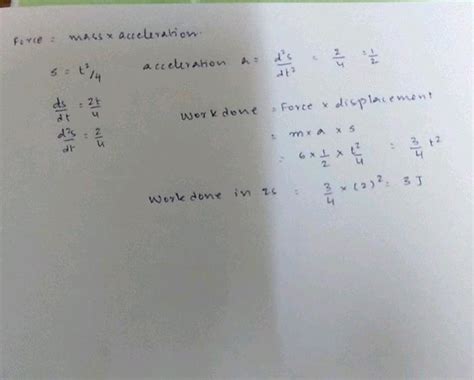 Force = mass x acceleration.
s = t²/4 acceleration a = d²s/dt² = 2/4 = 1/2
ds/dt = 2t/4
d²s/dt = 2/4
Work done = Force x displacement
= m x a x s
= 6 x 1/2 x t²/4 = 3/4 t²
Work done in 2s = 3/4 x (2)² = 3 J